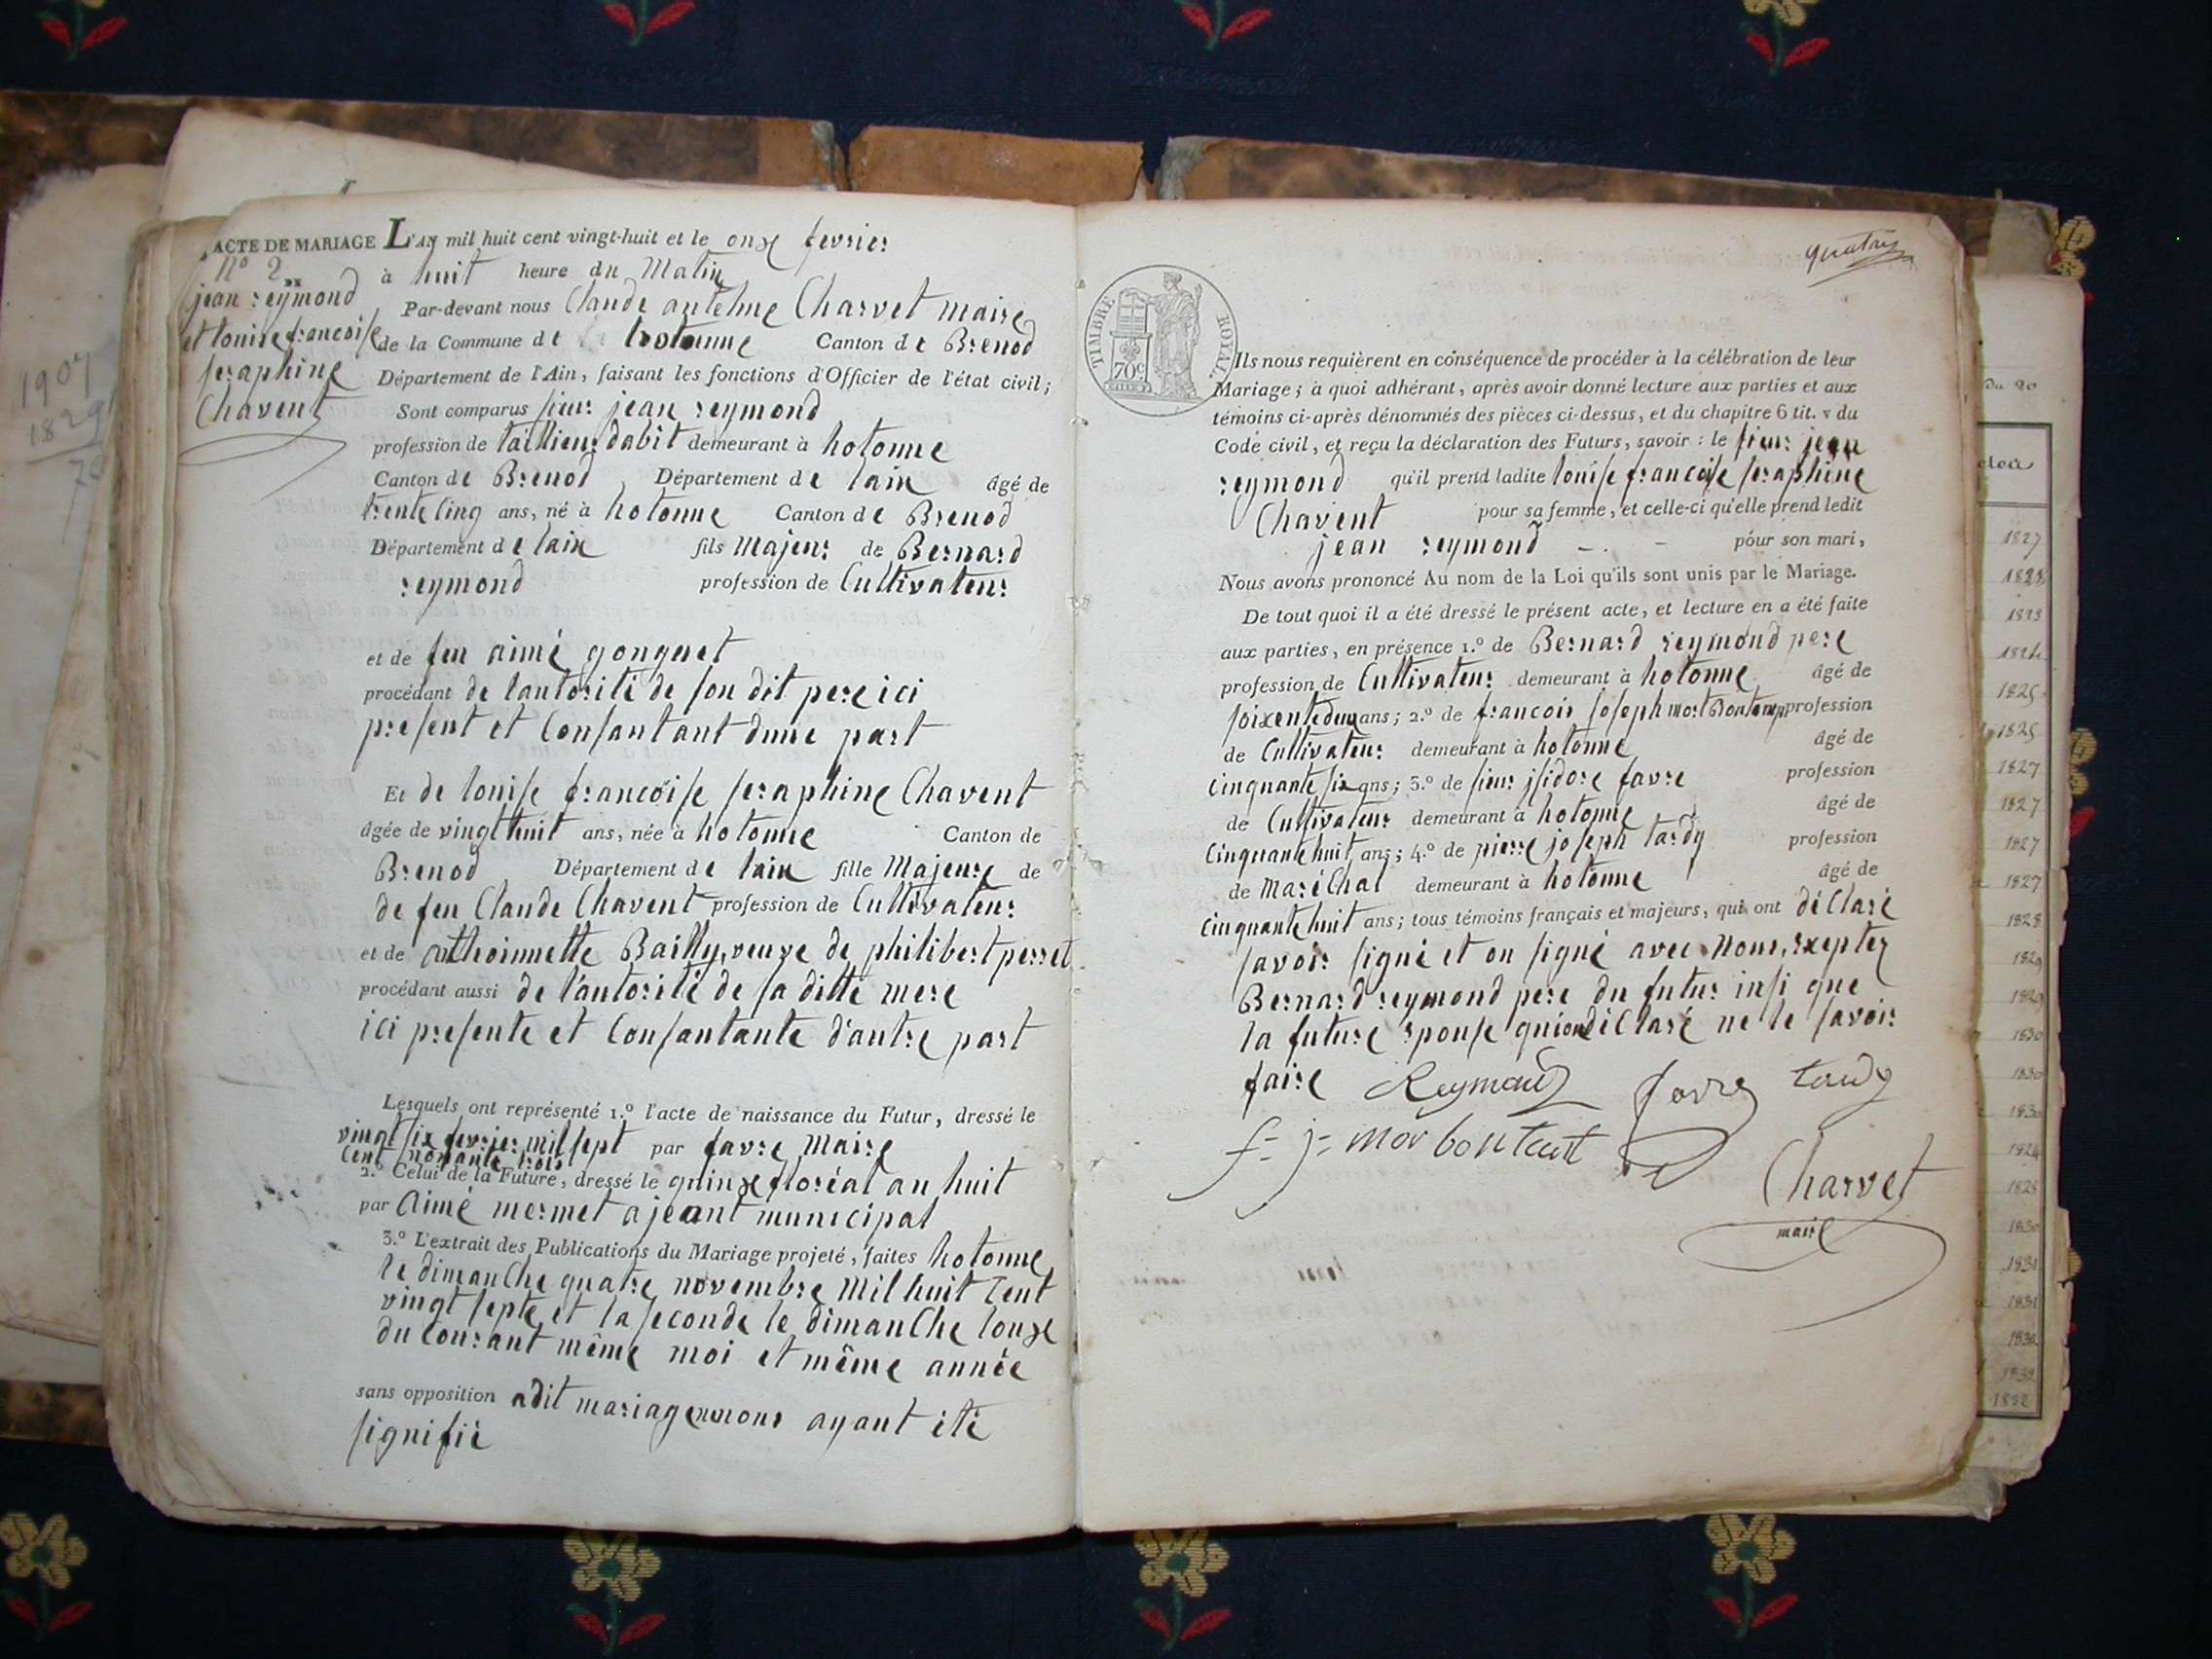 ACTE DE MARIAGE
N.o 2
jean reymond
et louise francoise
seraphine
Chavent
L'AN mil huit cent vingt-huit et le onze fevrier
à huit heure du Matin
Par-devant nous Claude antelme Charvet maire
de la Commune de hotonne Canton de Brenod
Département de l'Ain, faisant les fonctions d'Officier de l'état civil;
Sont comparus sieur jean reymond
profession de taillieur dabit demeurant à hotonne
Canton de Brenod Département de lain âgé de
trente Cinq ans, né à hotonne Canton de Brenod
Département de lain fils Majeur de Bernard
reymond profession de Cultivateur
et de feu aimé gonguet
procédant de lautorité de son dit pere ici
present et Consantant dune part
Et de louise francoise seraphine Chavent
âgée de vingt huit ans, née à hotonne Canton de
Brenod Département de lain fille Majeure de
de feu Claude Chavent profession de Cultivateur
et de anthoinnette Bailly, veuve de philibert perret
procédant aussi de l'autorité de sa ditte mere
ici presente et Consantante d'autre part
Lesquels ont représenté 1.o l'acte de naissance du Futur, dressé le
vingt six fevrier mil sept par favre Maire
Cent nonante trois
2.o Celui de la Future, dressé le quinze floréal an huit
par Aimé mermet ajeant municipal
3.o L'extrait des Publications du Mariage projeté, faites hotonne
le dimanche quatre novembre Mil huit Cent
vingt septe et la seconde le dimanche lonze
du Courant même moi et même année
sans opposition adit mariage nous ayant été
signifié
quatre
TIMBRE ROYAL
70c
Ils nous requièrent en conséquence de procéder à la célébration de leur
Mariage; à quoi adhérant, après avoir donné lecture aux parties et aux
témoins ci-après dénommés des pièces ci-dessus, et du chapitre 6 tit. v du
Code civil, et reçu la déclaration des Futurs, savoir: le sieur jean
reymond qu'il prend ladite louise francoise seraphine
Chavent pour sa femme, et celle-ci qu'elle prend ledit
jean reymond - . - pour son mari,
Nous avons prononcé Au nom de la Loi qu'ils sont unis par le Mariage.
De tout quoi il a été dressé le présent acte, et lecture en a été faite
aux parties, en présence 1.o de Bernard reymond pere
profession de Cultivateur demeurant à hotonne âgé de
soixente deux ans; 2.o de francois joseph mort Bontemp profession
de Cultivateur demeurant à hotonne âgé de
cinquante six ans; 3.o de sieur jsidore favre profession
de Cultivateur demeurant à hotonne âgé de
Cinquante huit ans; 4.o de pierre joseph tardy profession
de Maréchal demeurant à hotonne âgé de
Cinquante huit ans; tous témoins français et majeurs, qui ont déClaré
savoir signé et on signé avec Nous, Exeptez
Bernard reymond pere du futur insi que
la future epouse qui on déClaré ne le savoir
faire Reymond favre tardy
f = j = mor bontant
Charvet
maire
1907
1829
du 20
1827
1828
1825
1825
1827
1827
1827
1827
1828
1829
1829
1830
1830
1830
1824
1828
1830
1831
1831
1832
1832
1832